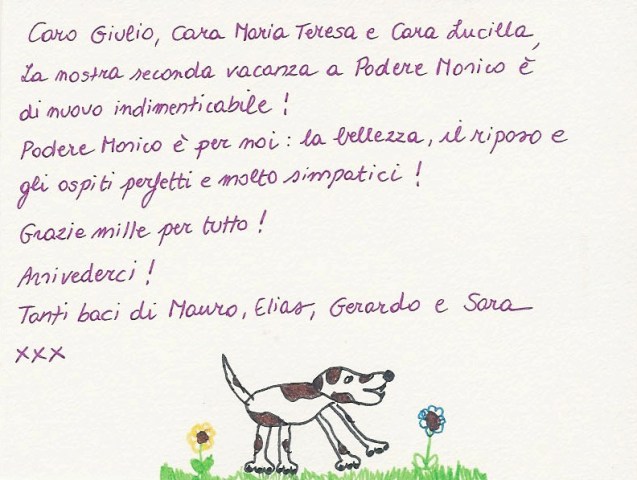 Caro Giulio, Cara Maria Teresa e Cara Lucilla,
La nostra seconda vacanza a Podere Monico è
di nuovo indimenticabile !
Podere Monico è per noi : la bellezza, il riposo e
gli ospiti perfetti e molto simpatici !
Grazie mille per tutto !
Arrivederci !
Tanti baci di Mauro, Elias, Gerardo e Sara
xxx